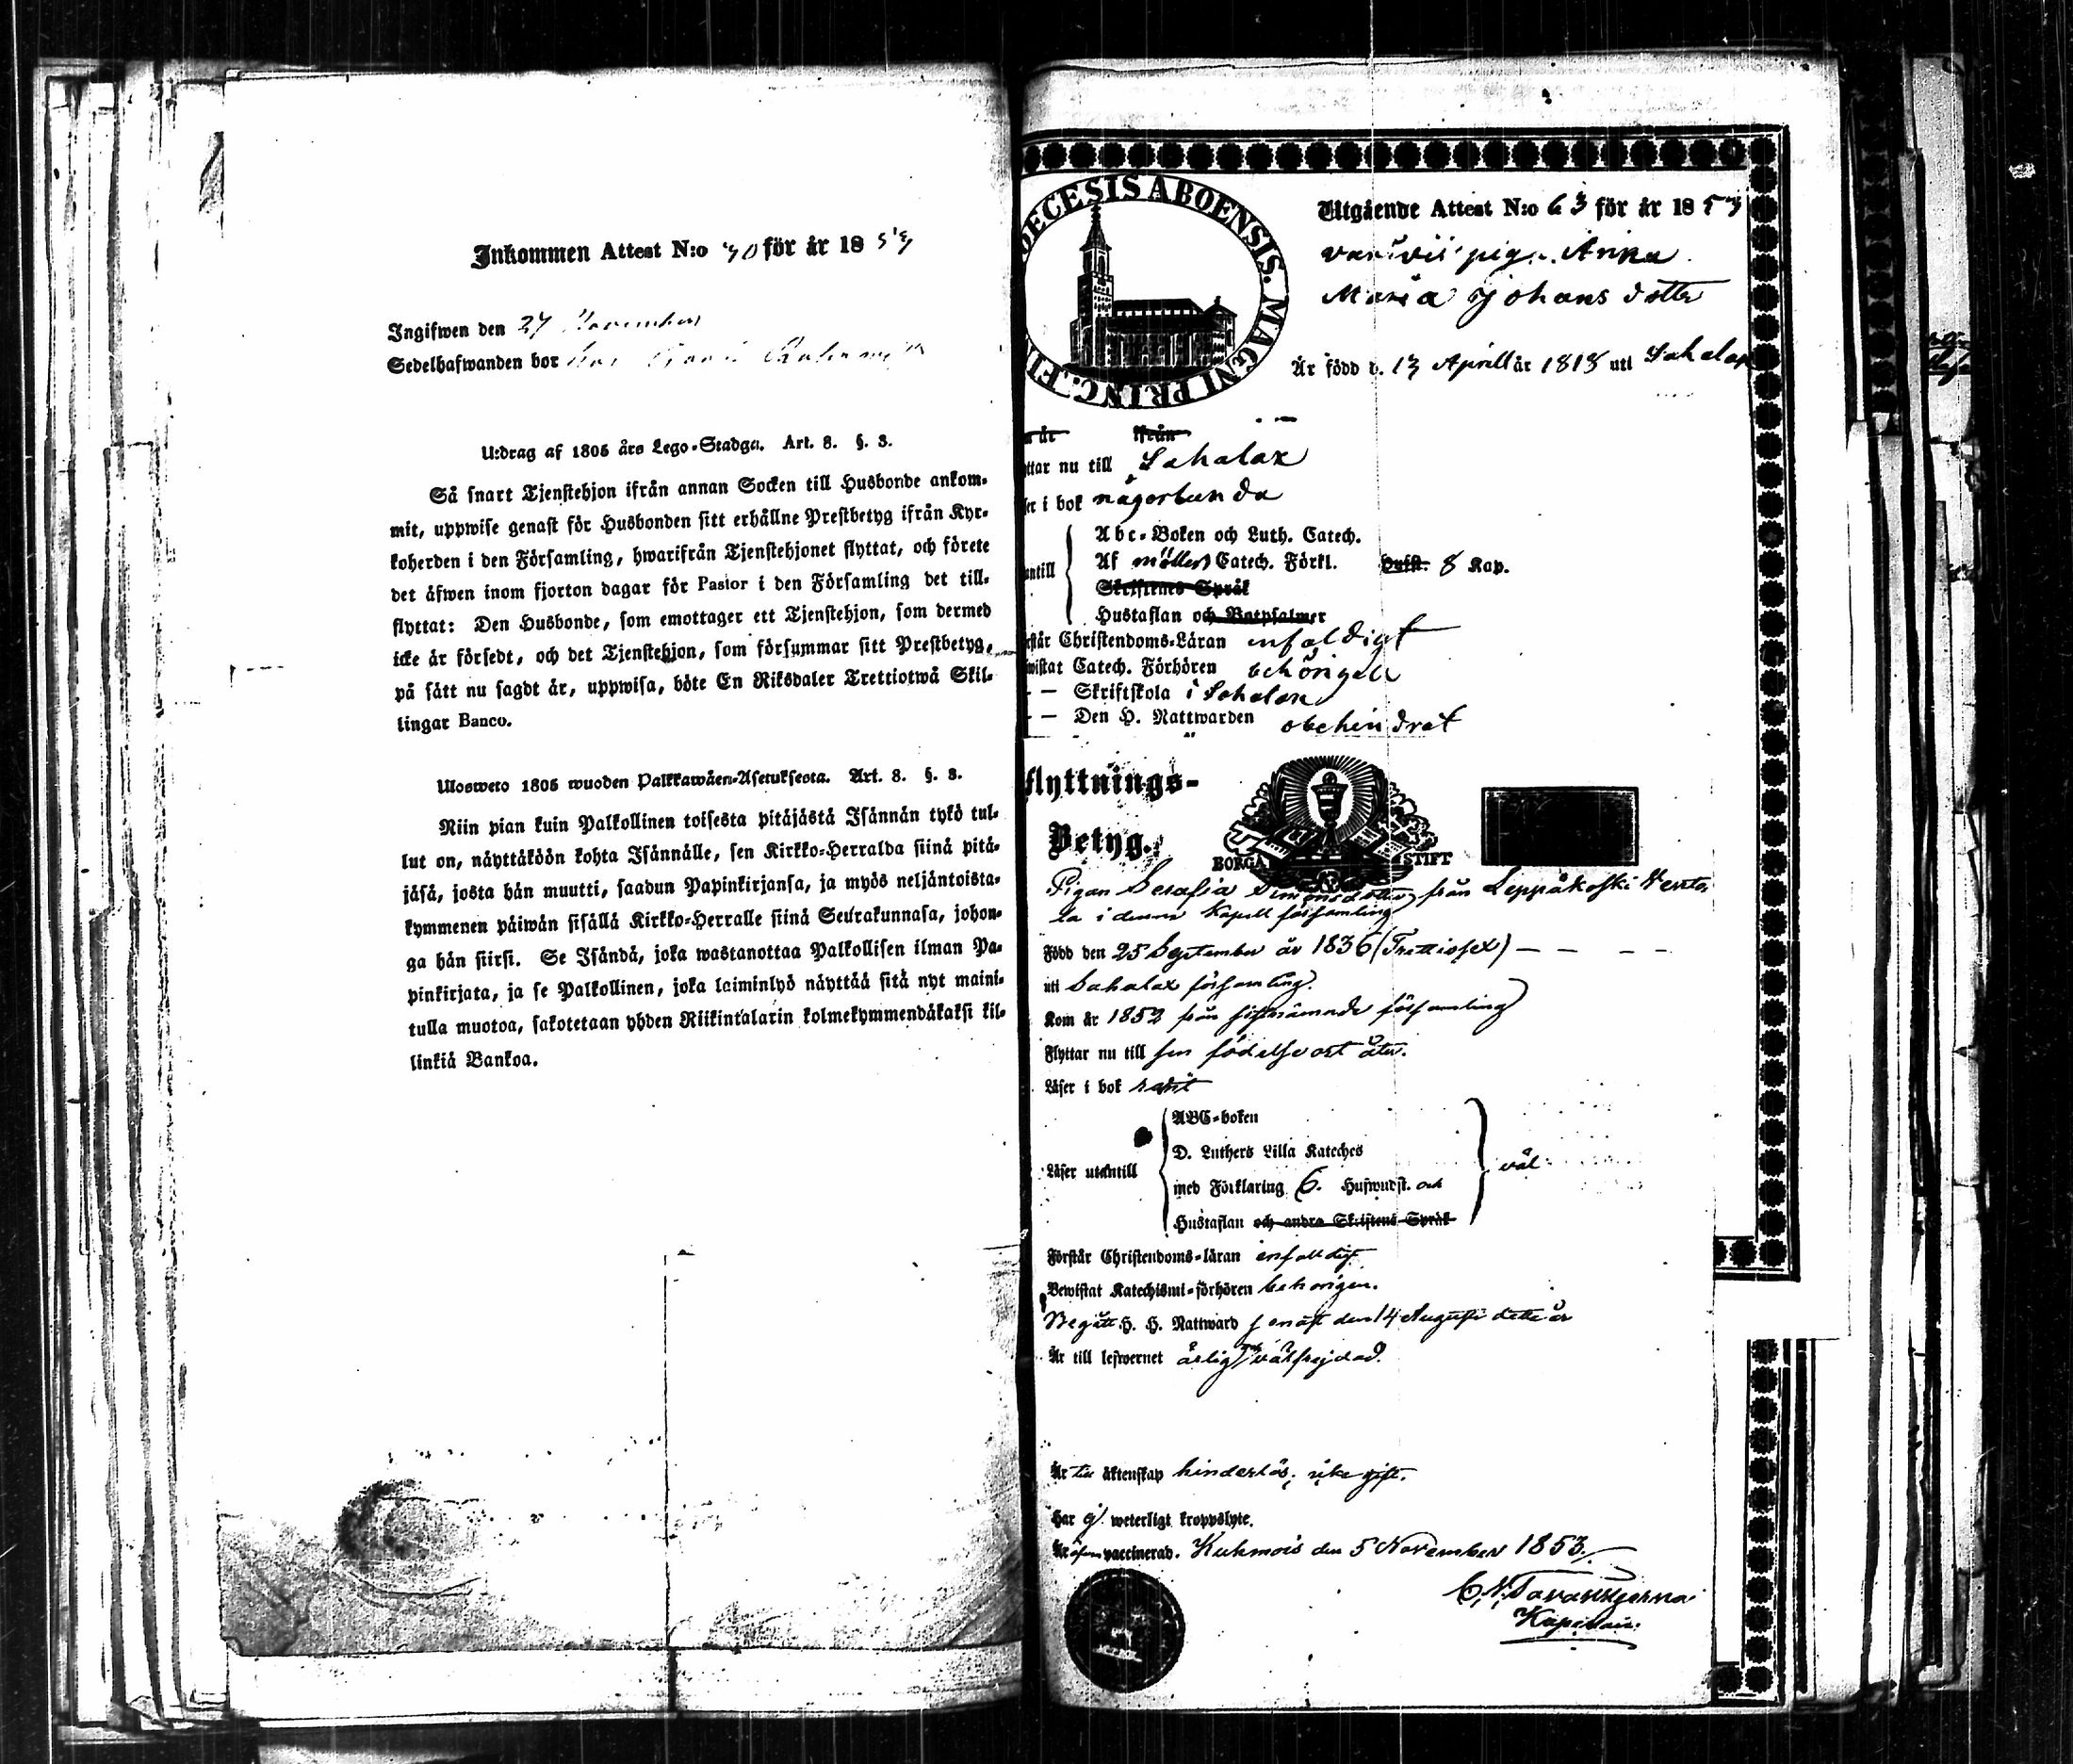 Inkommen Attest N:o 40 för år 1853
Ingifwen den 27 November
Sedelhafwanden bor
Utdrag af 1805 års Lego-Stadga. Art. 8. §. 3.
Så snart Tjenstehjon ifrån annan Socken till Husbonde ankom-
mit, uppwise genast för Husbonden sitt erhållne Prestbetyg ifrån Kyr-
koherden i den Församling, hwarifrån Tjenstehjonet flyttat, och förete
det äfwen inom fjorton dagar för Pastor i den Församling det till-
flyttat: Den Husbonde, som emottager ett Tjenstehjon, som dermed
icke är försedt, och det Tjenstehjon, som försummar sitt Prestbetyg,
på sätt nu sagdt är, uppwisa, böte En Riksdaler Trettiotwå Skil-
lingar Banco.
Ulosweto 1805 wuoden Palkkawäen-Asetuksesta. Art. 8. §. 3.
Niin pian kuin Palkollinen toisesta pitäjästä Isännän tykö tul-
lut on, näyttäköön kohta Isännälle, sen Kirkko-Herralda siinä pitä-
jäsä, josta hän muutti, saadun Papinkirjansa, ja myös neljäntoista-
kymmenen päiwän sisällä Kirkko-Herralle siinä Seurakunnasa, johon-
ga hän siirsi. Se Isändä, joka wastanottaa Palkollisen ilman Pa-
pinkirjata, ja se Palkollinen, joka laiminlyö näyttää sitä nyt maini-
tulla muotoa, sakotetaan yhden Riikintalarin kolmekymmendäkaksi kil-
linkiä Bankoa.
DECESIS ABOENSIS. MAGNI PRINC. FI
Utgående Attest N:o 63 för år 1853
Anna
Maria Johans dotter
Är född d. 13 Aprill år 1818 uti Sahalax
år ifrån
ttar nu till Sahalax
ser i bok någorlunda
antill
Abc-Boken och Luth. Catech.
Af möllers Catech. Förkl. 8 Kap.
Skriftenes Språk
Hustaflan och Botpsalmer
rstår Christendoms-Läran enfaldigt
wistat Catech. Förhören behörigen
— Skriftskola i Sahalax
— Den H. Nattwarden obehindrat
flyttnings-
Betyg.
BORGÅ STIFT
Pigan Serafia Simonsdotter från Leppäkoski
la i denna Kapell församling
Född den 25 September år 1836 (Trettiosex) — — — —
uti Sahalax församling.
Kom år 1852 från sistnämnde församling
Flyttar nu till sin födelseort åter.
Läser i bok rent
Läser utantill
ABC-boken
D. Luthers Lilla Kateches
med Förklaring 6. Hufwudst. och
Hustaflan och andra Skriftens Språk
väl
Förstår Christendoms-läran enfaldigt
Bewistat Katechismi-förhören behörigen.
Begått H. H. Nattward senast den 14 Augusti detta år
Är till lefwernet ärlig och välfrejdad.
Är till äktenskap hinderlös, icke gift.
Har ej weterligt kroppslyte.
Är äfven vaccinerad. Kuhmois den 5 November 1853.
C. N. Tavaststjerna
Kapellan.